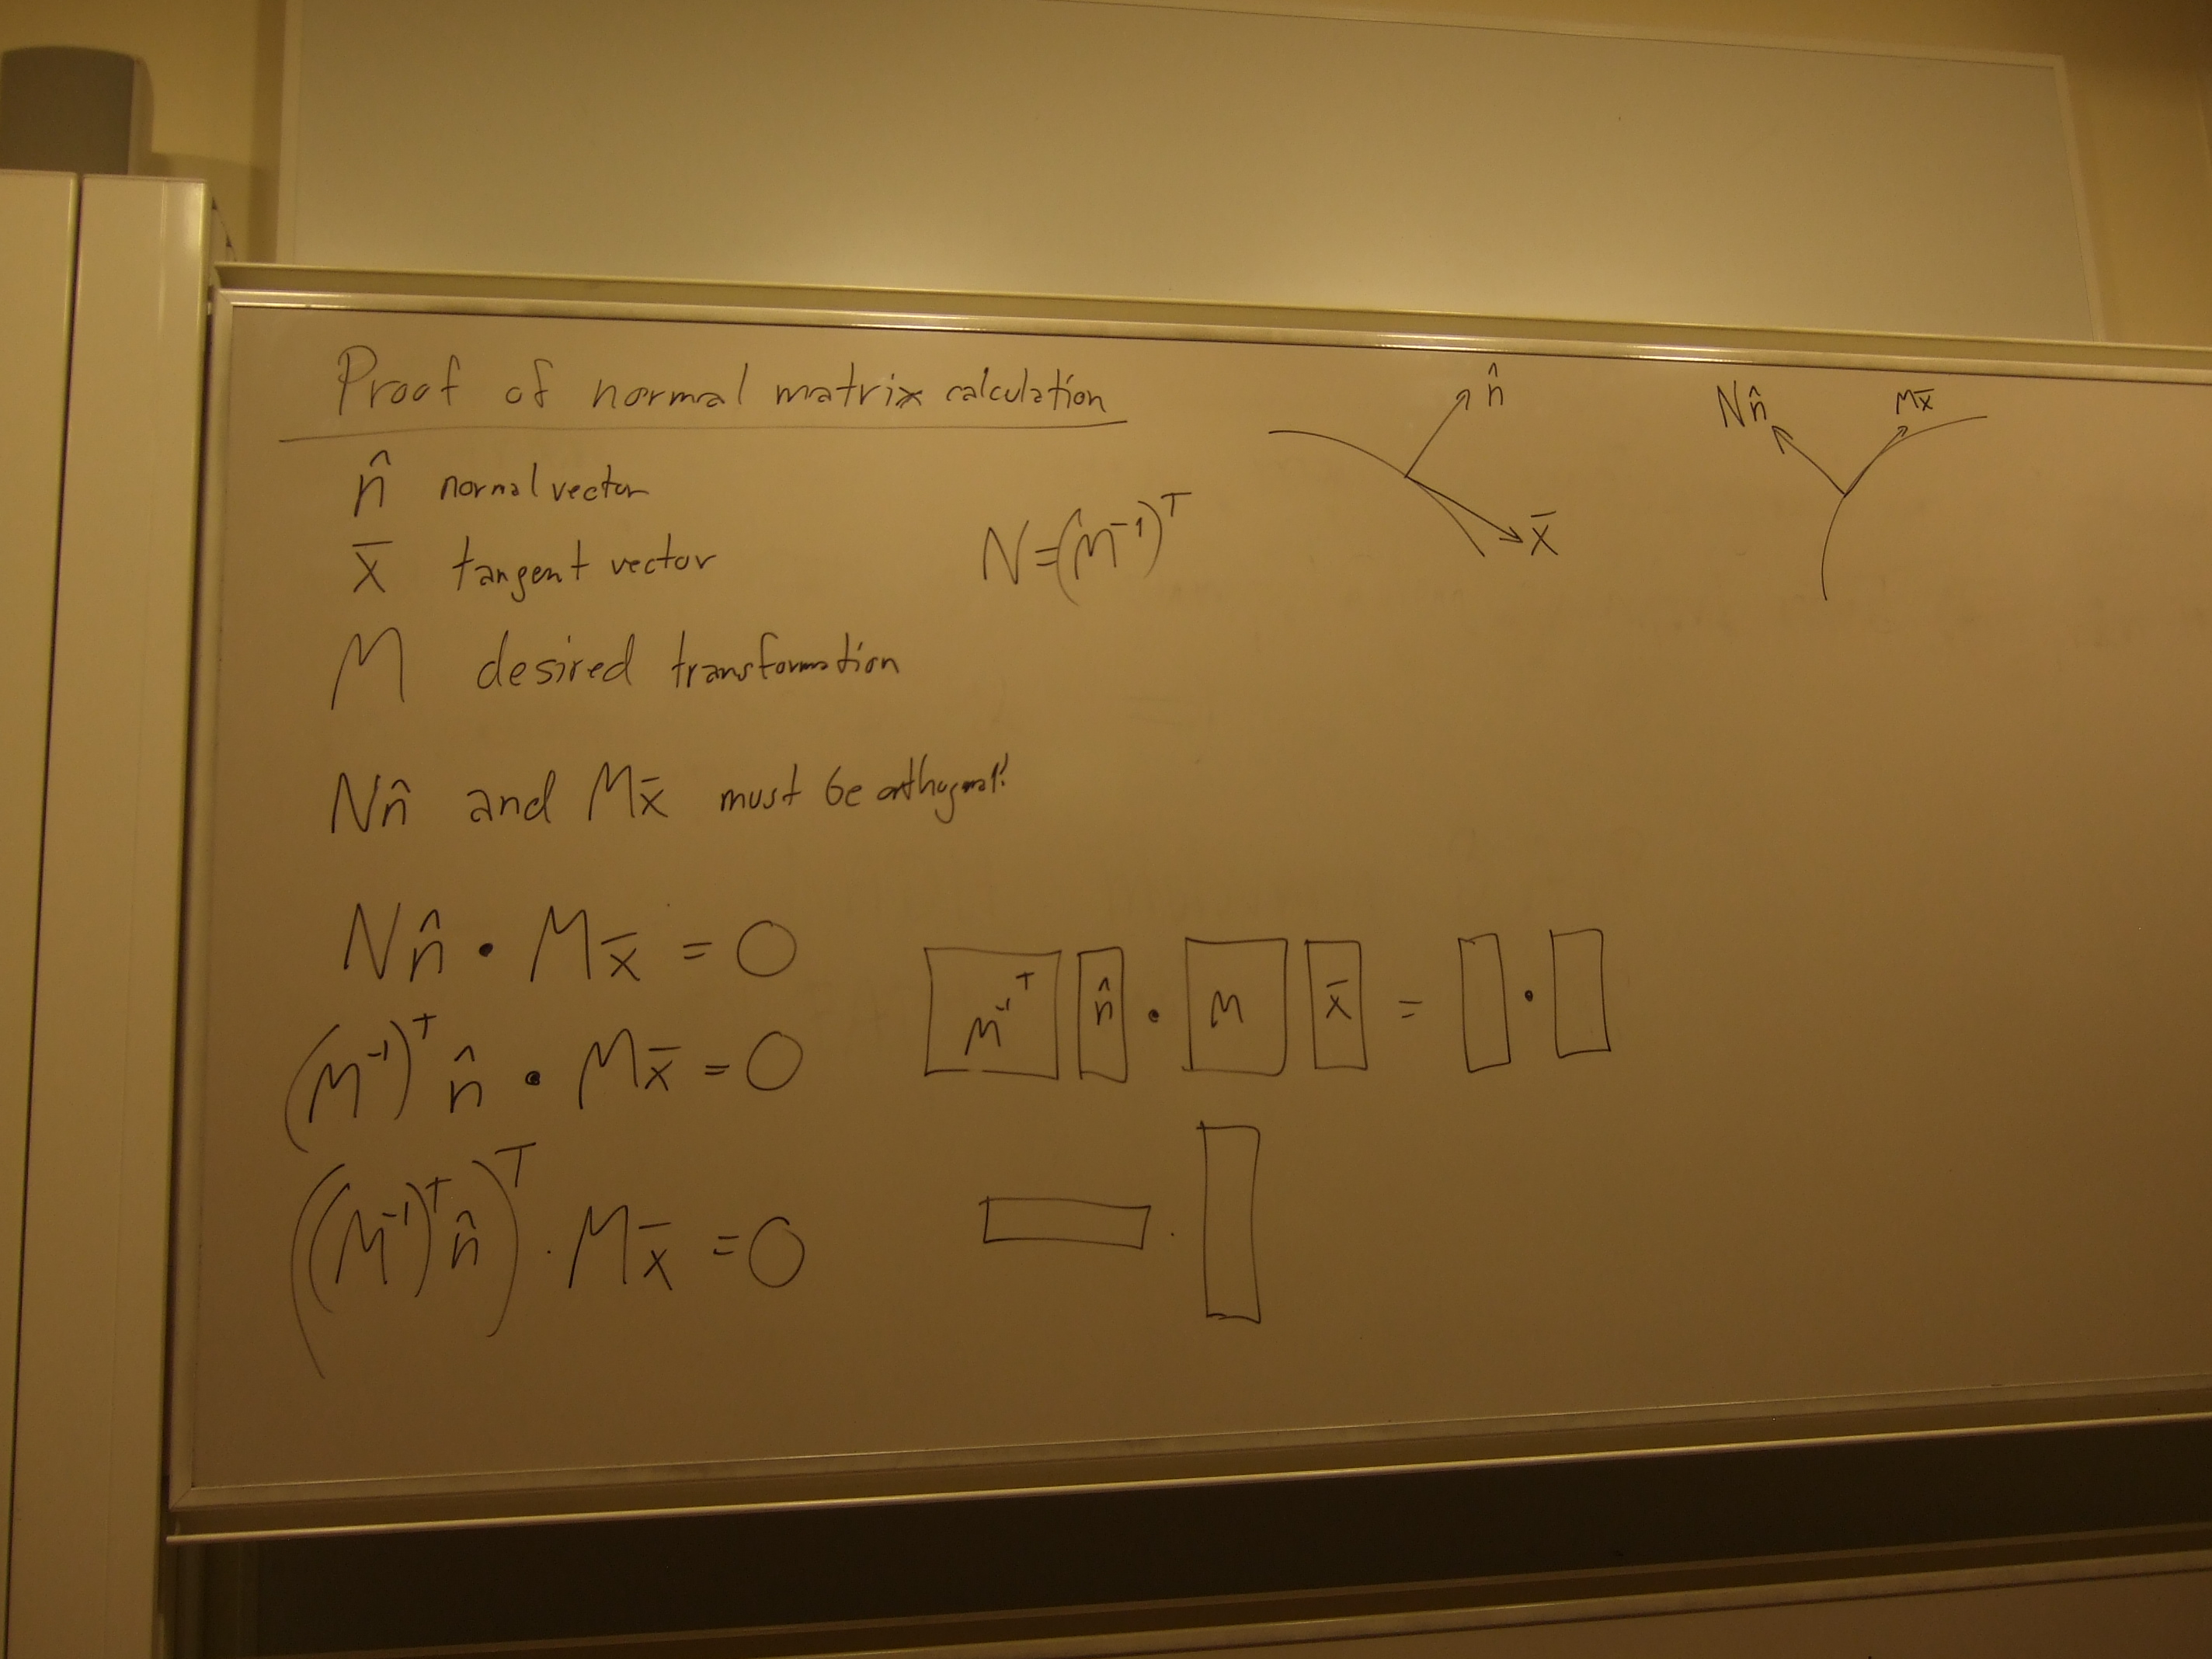 Proof of normal matrix calculation
n̂ normal vector
x̄ tangent vector
N=(M⁻¹)ᵀ
M desired transformation
n̂
x̄
Nn̂
Mx̄
Nn̂ and Mx̄ must be orthogonal!
Nn̂ • Mx̄ = 0
(M⁻¹)ᵀ n̂ • Mx̄ = 0
M⁻¹ᵀ n̂ • M x̄ = •
((M⁻¹)ᵀ n̂)ᵀ · Mx̄ = 0
·